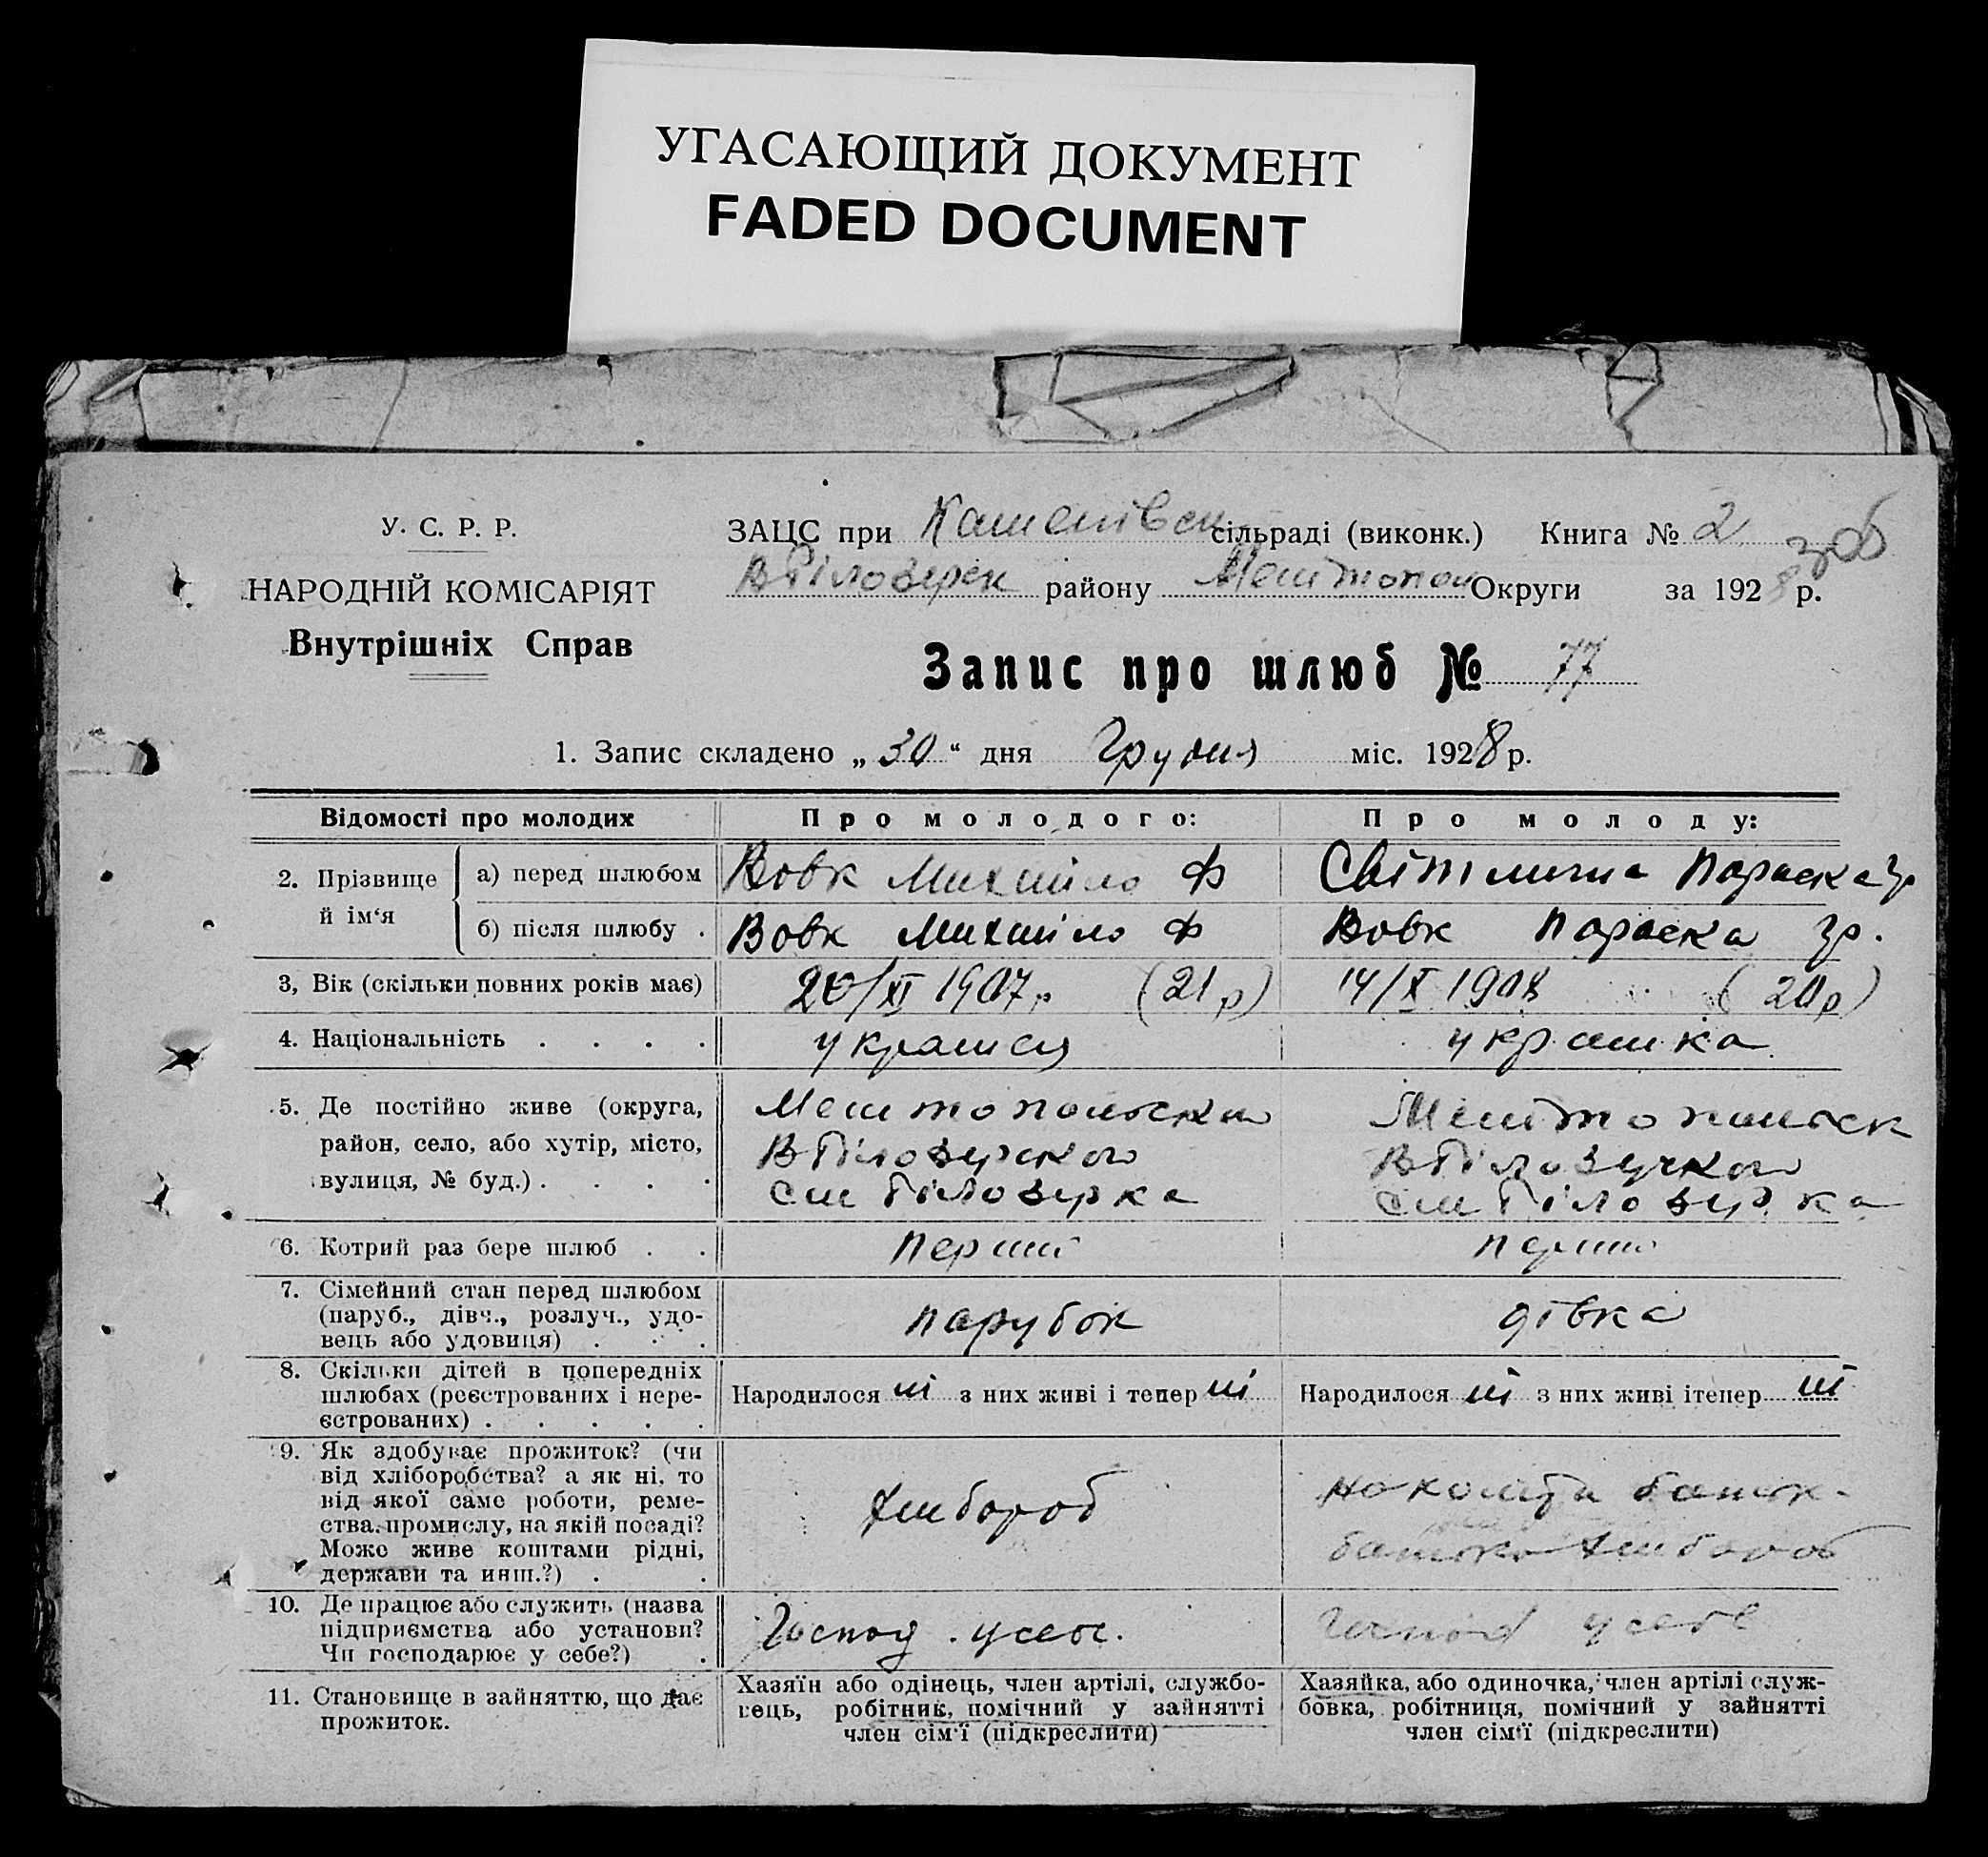 УГАСАЮЩИЙ ДОКУМЕНТ
FADED DOCUMENT
У. С. Р. Р.
НАРОДНІЙ КОМІСАРІЯТ
Внутрішніх Справ
ЗАЦС при сільраді (виконк.) Книга № 2
306
В Білозерск району Мелітопол Округи за 1928 р.
Запис про шлюб № 77
1. Запис складено „30“ дня Грудня міс. 1928 р.
Відомості про молодих
Про молодого:
Про молоду:
2. Прізвище й ім‘я
а) перед шлюбом
Вовк Михайло Ф
Світлична Параска Гр
б) після шлюбу .
Вовк Михайло Ф
Вовк Параска Гр.
3, Вік (скільки повних років має)
20/XI 1907р. (21 р)
14/X 1908 (20 р)
4. Національність . . . .
українец
українка
5. Де постійно живе (округа,
район, село, або хутір, місто,
вулиця, № буд.) . . . .
Мелітопольська
В Білозерского
см Білозерка
Мелітопольск
В Білозерского
см Білозерка
6. Котрий раз бере шлюб . .
перший
перший
7. Сімейний стан перед шлюбом
(паруб., дівч., розлуч., удо-
вець або удовиця) . . .
парубок
дівка
8. Скільки дітей в попередніх
шлюбах (реєстрованих і нере-
єстрованих) . . . . .
Народилося ні з них живі і тепер ні
Народилося ні з них живі ітепер ні
9. Як здобуває прожиток? (чи
від хліборобства? а як ні, то
від якої саме роботи, реме-
ства, промислу, на якій посаді?
Може живе коштами рідні,
держави та инш.?) . .
хлібороб
на кошти батьк.
батько хлібороб
10. Де працює або служить (назва
підприємства або установи?
Чи господарює у себе?) .
Господ. у себе.
Господ у себе
11. Становище в зайняттю, що дає
прожиток.
Хазяїн або одінець, член артілі, службо-
вець, робітник, помічний у зайнятті
член сім‘ї (підкреслити)
Хазяйка, або одиночка, член артілі служ-
бовка, робітниця, помічний у зайнятті
член сім‘ї (підкреслити)